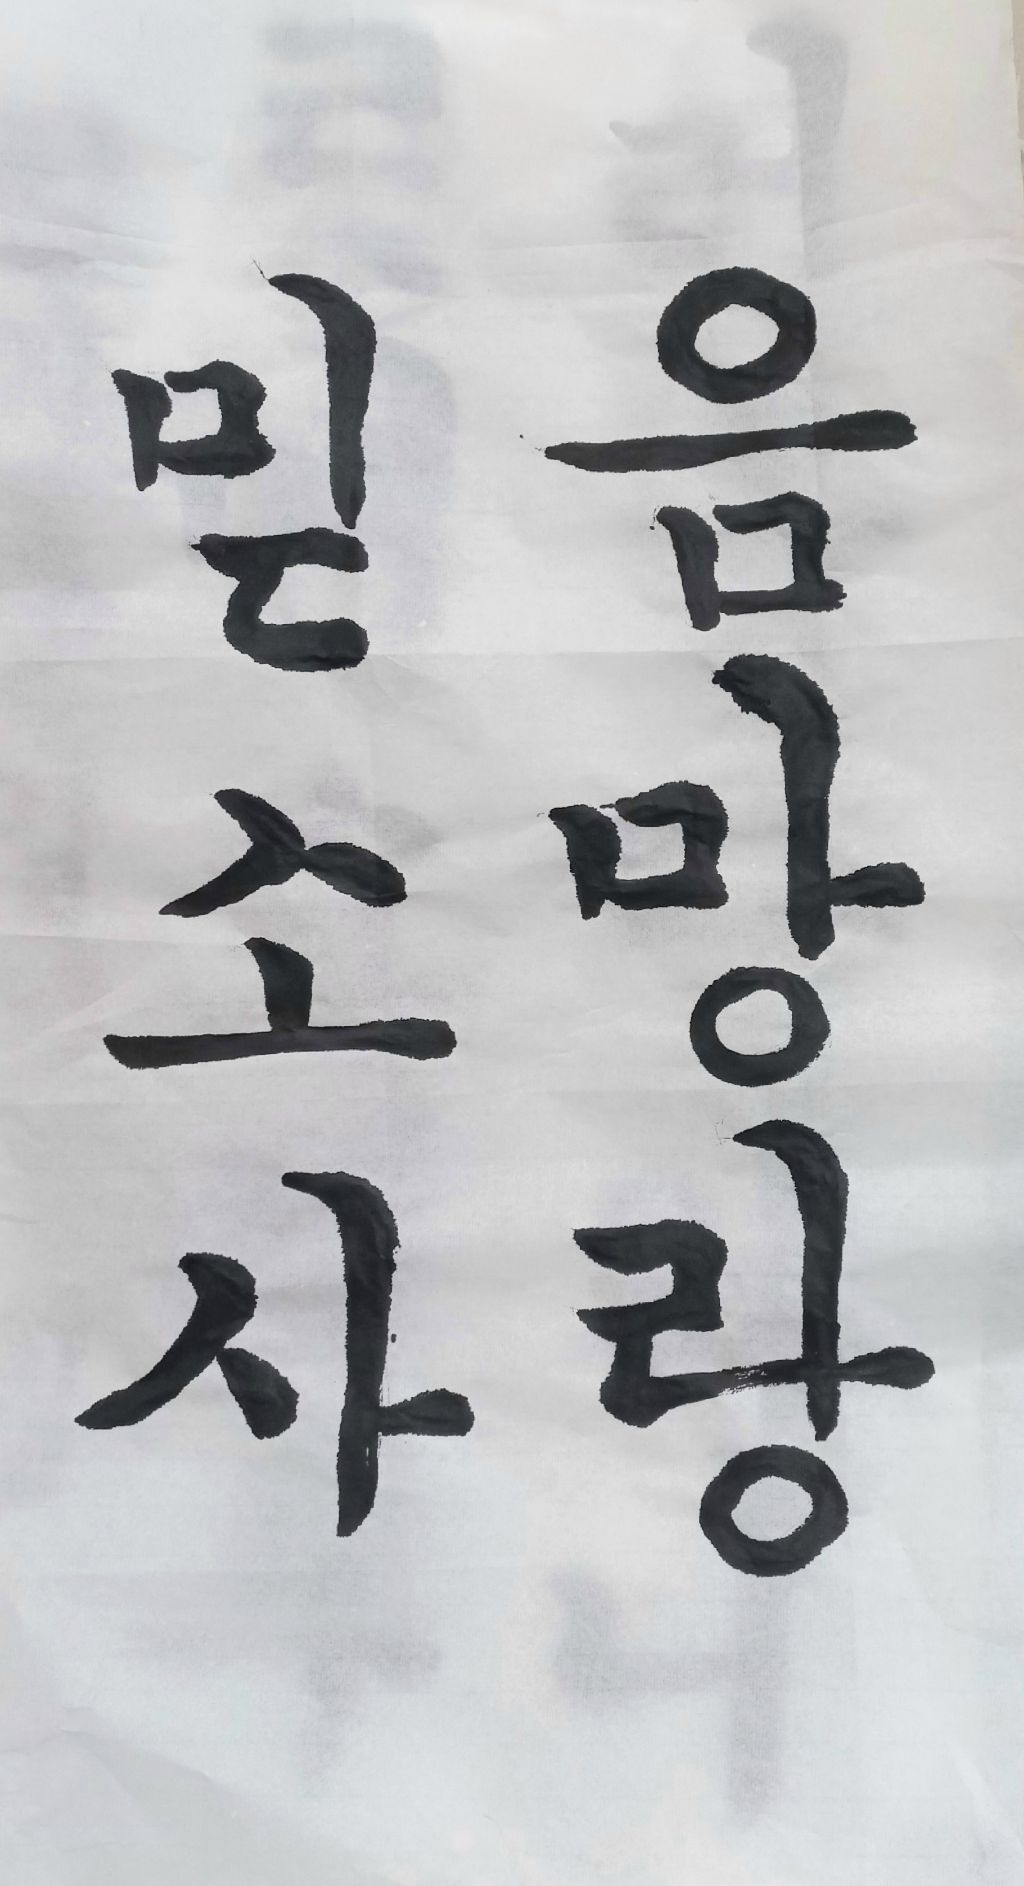 믿음
소망
사랑